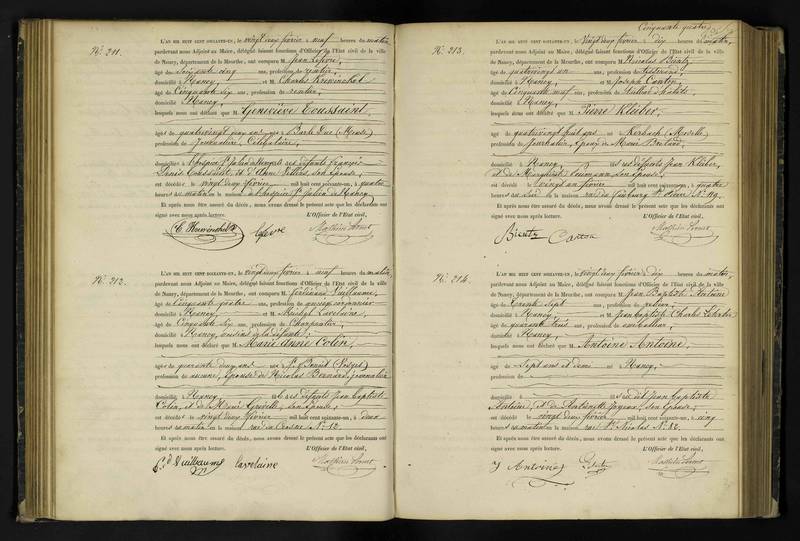 Nº. 211.
L'AN MIL HUIT CENT SOIXANTE-UN, le vingt deux février à neuf heures du matin,
pardevant nous Adjoint au Maire, délégué faisant fonctions d'Officier de l'Etat civil de la ville
de Nancy, département de la Meurthe, ont comparu M. Jean Lefèvre,
âgé de soixante cinq ans, profession de rentier,
domicilié à Nancy, et M. Charles
âgé de Cinquante six ans, profession de rentier,
domicilié à Nancy,
lesquels nous ont déclaré que M. Geneviève Toussaint,
âgé de quatrevingt ans né à Barle Duc (Meuse)
profession de Journalière, Célibataire,
domiciliée à l'hospice St. Julien de Nancy des défunts François
Louis Toussaint, et d'Anne Villers, son épouse,
est décédée le vingt deux février mil huit cent soixante-un, à quatre
heures au matin en la maison à l'hospice St. Julien de Nancy
Et après nous être assuré du décès, nous avons dressé le présent acte que les déclarants ont
signé avec nous après lecture. L'Officier de l'Etat civil,
Lefèvre
Nº. 212.
L'AN MIL HUIT CENT SOIXANTE-UN, le vingt deux février à neuf heures du matin,
pardevant nous Adjoint au Maire, délégué faisant fonctions d'Officier de l'Etat civil de la ville
de Nancy, département de la Meurthe, ont comparu M. Ferdinand Vuillaume,
âgé de Cinquante quatre ans, profession de ancien cordonnier
domicilié à Nancy, et M. Michel Lavelaine,
âgé de Cinquante six ans, profession de Charpentier,
domicilié à Nancy, voisins de la défunte;
lesquels nous ont déclaré que M. Marie Anne Colin,
âgé de quarante deux ans né à St. Benoit (Vosges)
profession de aucune, épouse de Nicolas Bernard, journalier
domicilié à Nancy, des défunts Jean Baptiste
Colin, et de Marie Greville, son épouse;
est décédée le vingt deux février mil huit cent soixante-un, à deux
heures au matin en la maison rue Nº 12.
Et après nous être assuré du décès, nous avons dressé le présent acte que les déclarants ont
signé avec nous après lecture. L'Officier de l'Etat civil,
Vuillaume Lavelaine
Cinquante quatre
Nº. 213.
L'AN MIL HUIT CENT SOIXANTE-UN, le vingt deux février à dix heures du matin,
pardevant nous Adjoint au Maire, délégué faisant fonctions d'Officier de l'Etat civil de la ville
de Nancy, département de la Meurthe, ont comparu M. Nicolas Bientz
âgé de quatrevingt un ans, profession de
domicilié à Nancy, et M. Joseph Canton,
âgé de Cinquante neuf ans, profession de tailleur d'habits
domicilié à Nancy,
lesquels nous ont déclaré que M. Pierre Kleiber,
âgé de quatrevingt huit ans né à Kerbach (Moselle)
profession de Journalier, époux de Marie
domicilié à Nancy, des défunts Jean Kleiber,
et de Marguerite son épouse;
est décédé le vingt un février mil huit cent soixante-un, à quatre
heures au soir en la maison rue du faubourg St. Pierre Nº 119.
Et après nous être assuré du décès, nous avons dressé le présent acte que les déclarants ont
signé avec nous après lecture. L'Officier de l'Etat civil,
Bientz Canton
Nº. 214.
L'AN MIL HUIT CENT SOIXANTE-UN, le vingt deux février à dix heures du matin,
pardevant nous Adjoint au Maire, délégué faisant fonctions d'Officier de l'Etat civil de la ville
de Nancy, département de la Meurthe, ont comparu M. Jean Baptiste Antoine
âgé de trente sept ans, profession de relieur,
domicilié à Nancy et M. Jean Baptiste Charles
âgé de quarante trois ans, profession de emballeur,
domicilié à Nancy,
lesquels nous ont déclaré que M. Antoine Antoine,
âgé de sept ans et demi né à Nancy,
profession de
domicilié à fils du dit Jean Baptiste
Antoine, et de Antoinette son épouse;
est décédé le vingt deux février mil huit cent soixante-un, à cinq
heures au matin en la maison rue St. Nicolas Nº 82.
Et après nous être assuré du décès, nous avons dressé le présent acte que les déclarants ont
signé avec nous après lecture. L'Officier de l'Etat civil,
J Antoine